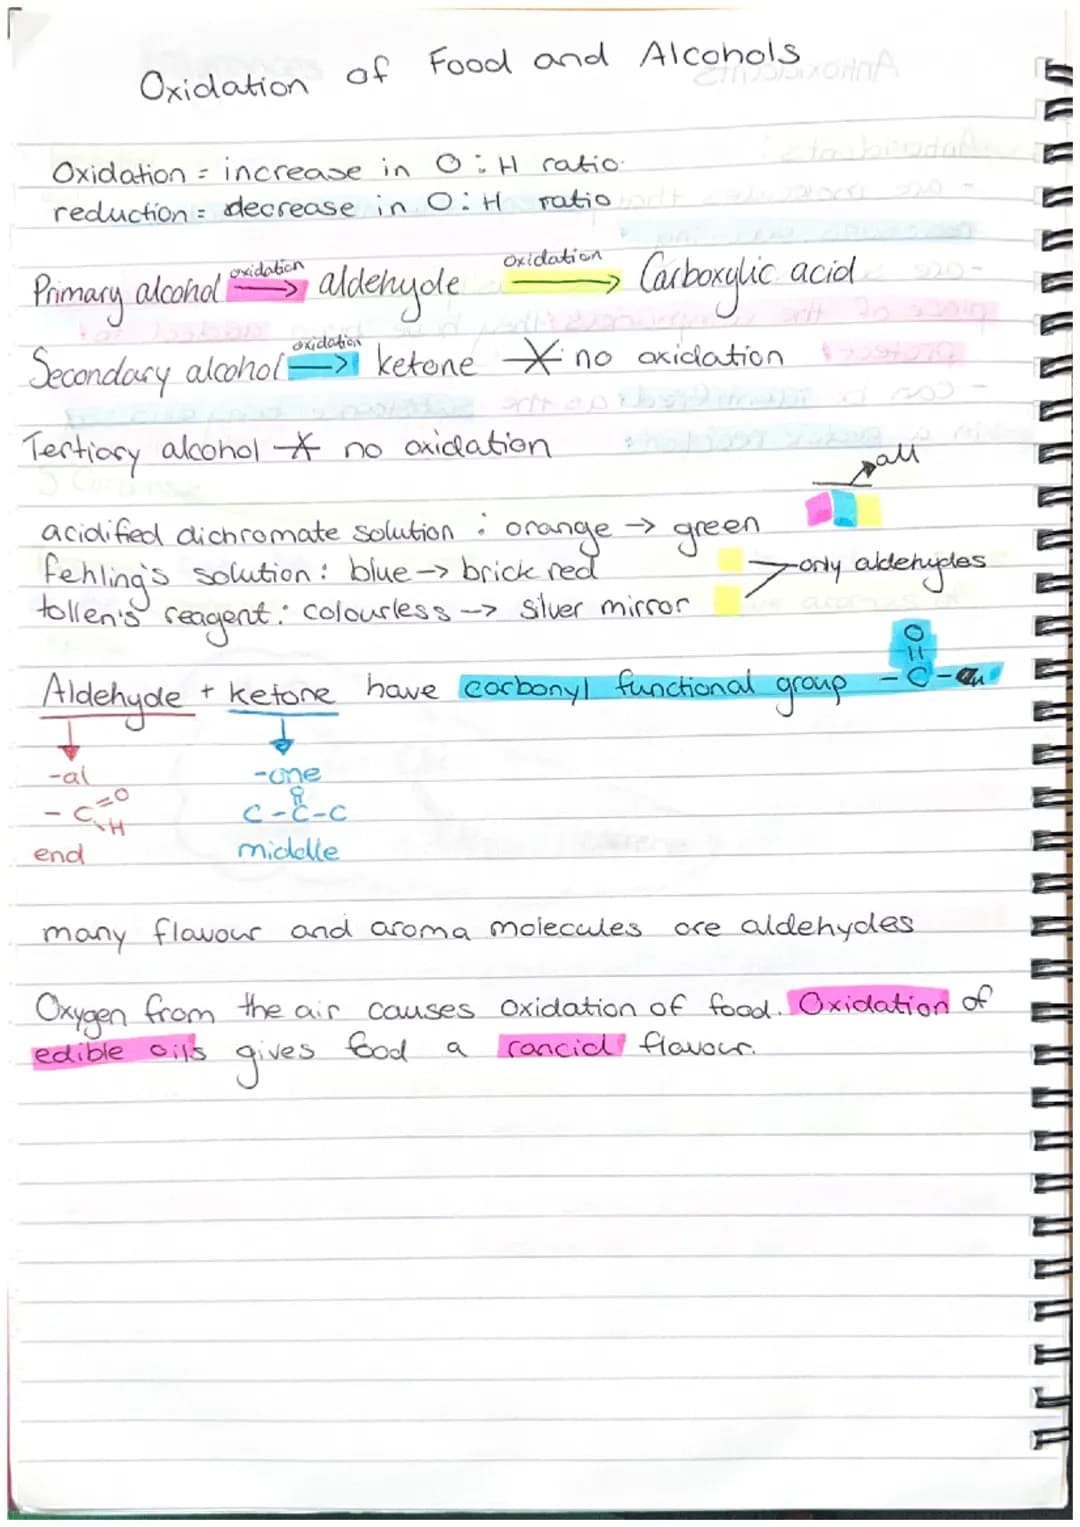 Oxidation of Food and Alcohols
Oxidation = increase in O : H ratio.
reduction = decrease in O : H ratio
Primary alcohol oxidation → aldehyde oxidation → Carboxylic acid
Secondary alcohol oxidation → ketone no oxidation
Tertiary alcohol no oxidation
all
acidified dichromate solution : orange → green
fehling's solution : blue → brick red
only aldehydes
tollen's reagent : colourless → silver mirror
Aldehyde + ketone have carbonyl functional group
O
-C-
-al
-one
- C=O
H
O
C-C-C
end
middle
many flavour and aroma molecules are aldehydes
Oxygen from the air causes oxidation of food. Oxidation of
edible oils gives food a rancid flavour.